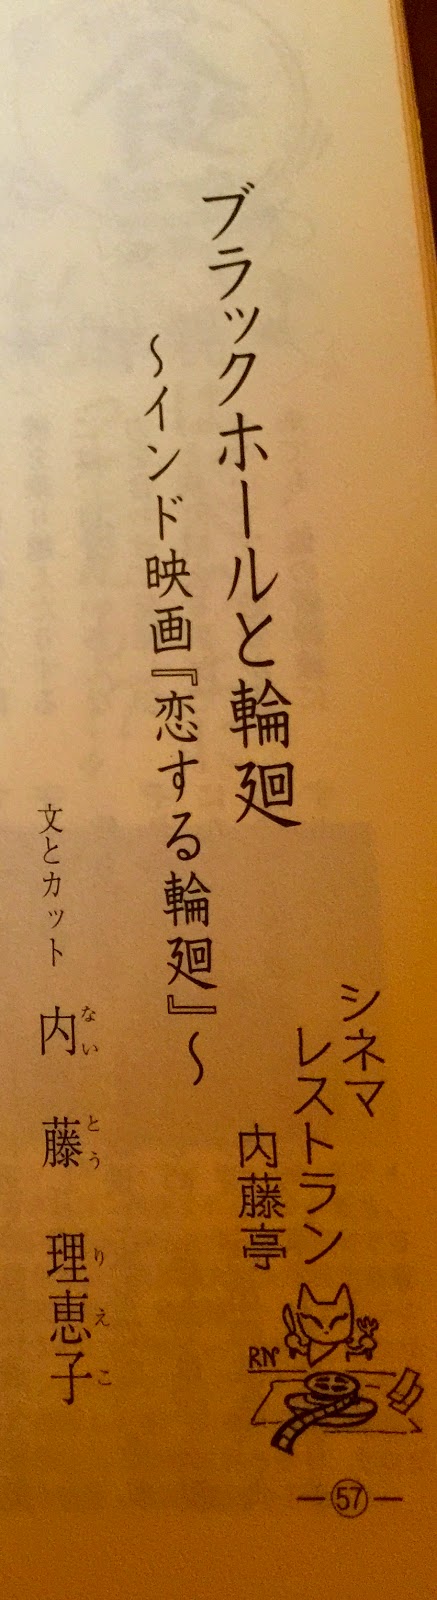 シネマ
レストラン
内藤亭
RN
—57—
ブラックホールと輪廻
〜インド映画『恋する輪廻』〜
文とカット 内藤理恵子
ないとうりえこ